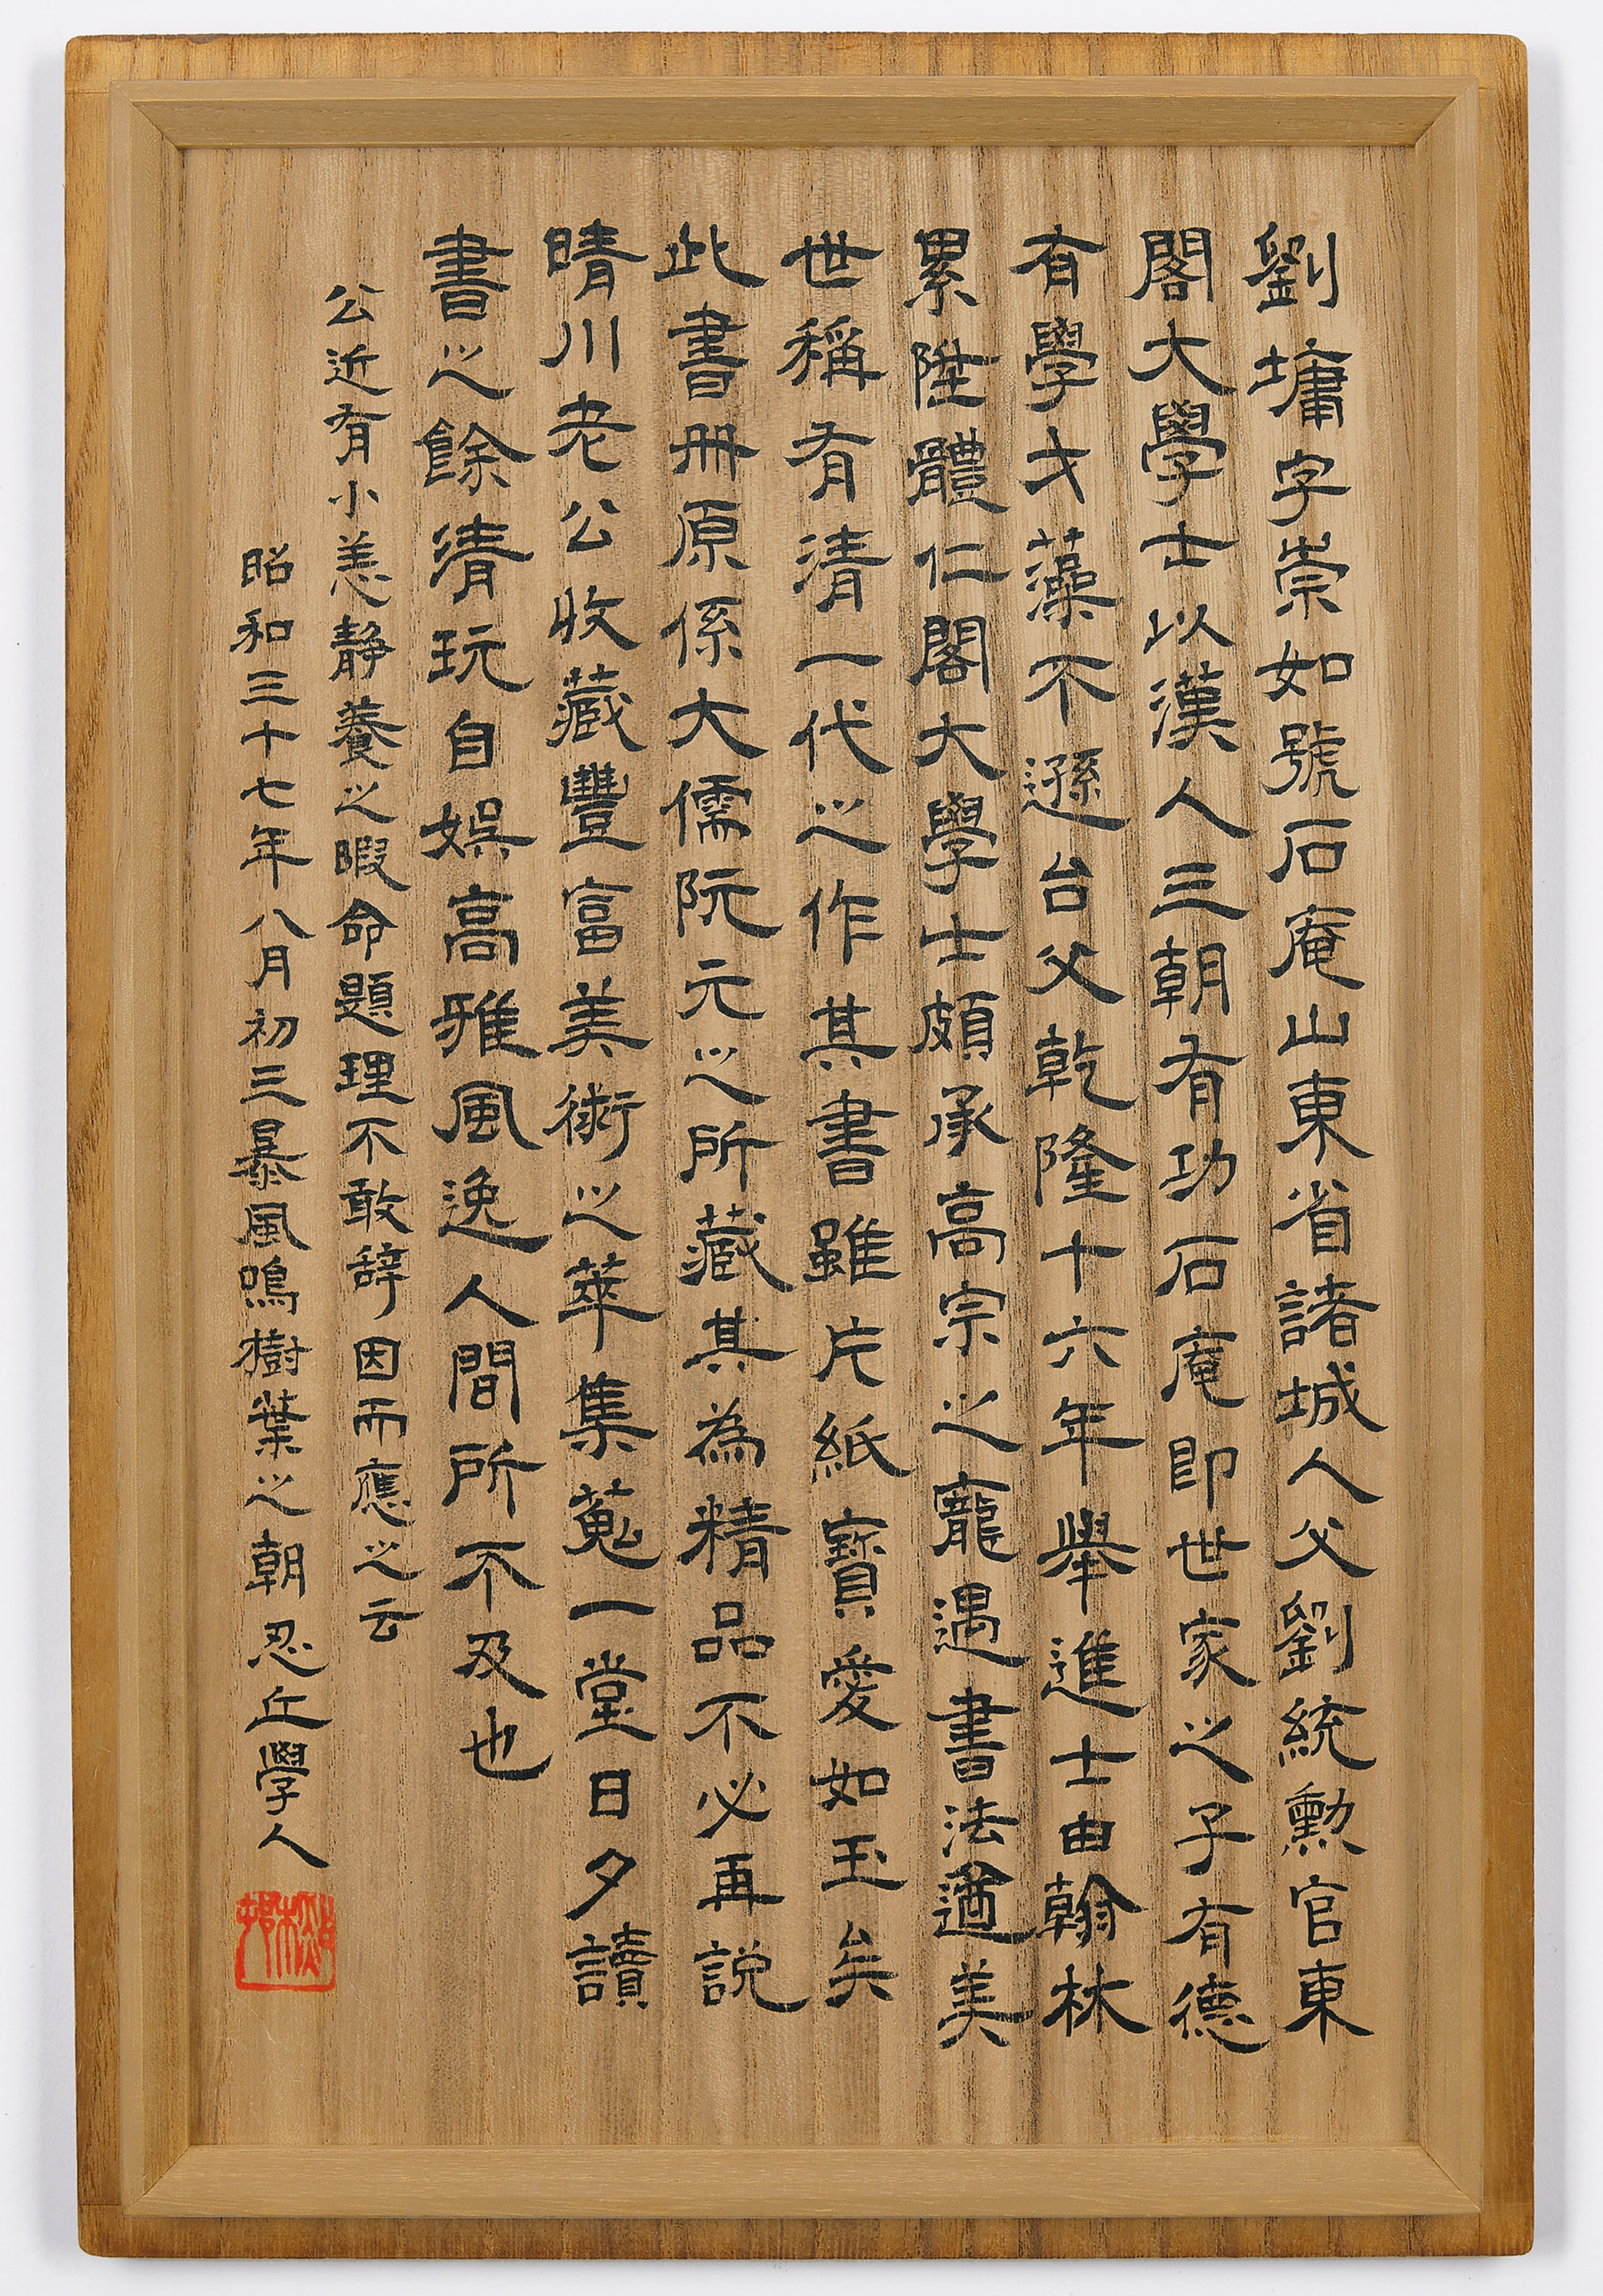 劉墉字崇如號石庵山東省諸城人父劉統勲官東
閣大學士以漢人三朝有功石庵即世家之子有德
有學才藻不遜台父乾隆十六年舉進士由翰林
累陞體仁閣大學士頗承高宗之寵遇書法遒美
世稱有清一代之作其書雖片紙寶愛如玉矣
此書册原係大儒阮元之所藏其為精品不必再説
晴川老公收藏豐富美術之萃集蒐一堂日夕讀
書之餘清玩自娯高雅風逸人間所不及也
公近有小恙静養之暇命題理不敢辞因而應之云
昭和三十七年八月初三暴風鳴樹葉之朝忍丘學人